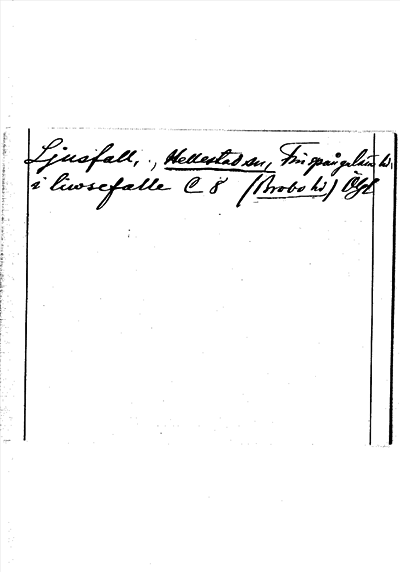 Ljusfall, ., Hellestad sn, Finspångalän hd.
i liwsefalle C 8 (Brobo hd) Ögl